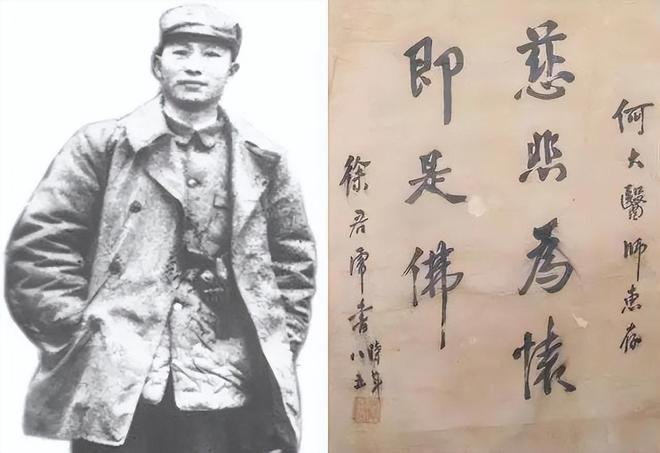 何大醫師惠存
慈悲為懷
即是佛
徐君虎書
時年
八五